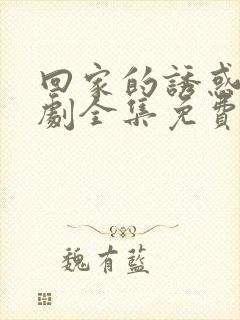 回家的誘惑
劇全集免費
魏有藍